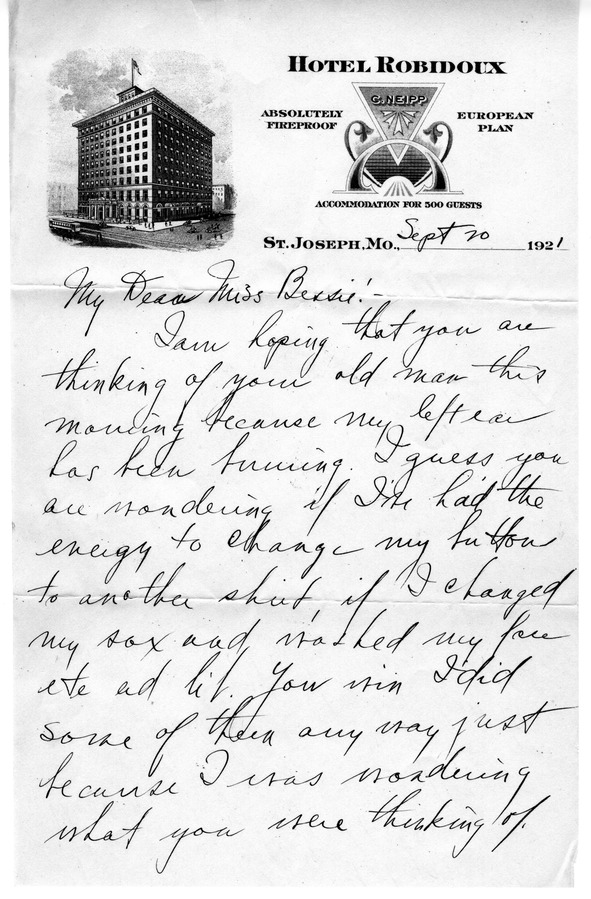 HOTEL ROBIDOUX
C. NEIPP
ABSOLUTELY
FIREPROOF
EUROPEAN
PLAN
ACCOMMODATION FOR 500 GUESTS
ST. JOSEPH, MO., Sept 20 1921
My Dear Miss Bessie:-
I am hoping that you are
thinking of your old man this
morning because my left ear
has been burning. I guess you
are wondering if I've had the
energy to change my button
to another shirt, if I changed
my sox and washed my face
etc ad lib. You win I did
some of them any way just
because I was wondering
what you were thinking of.